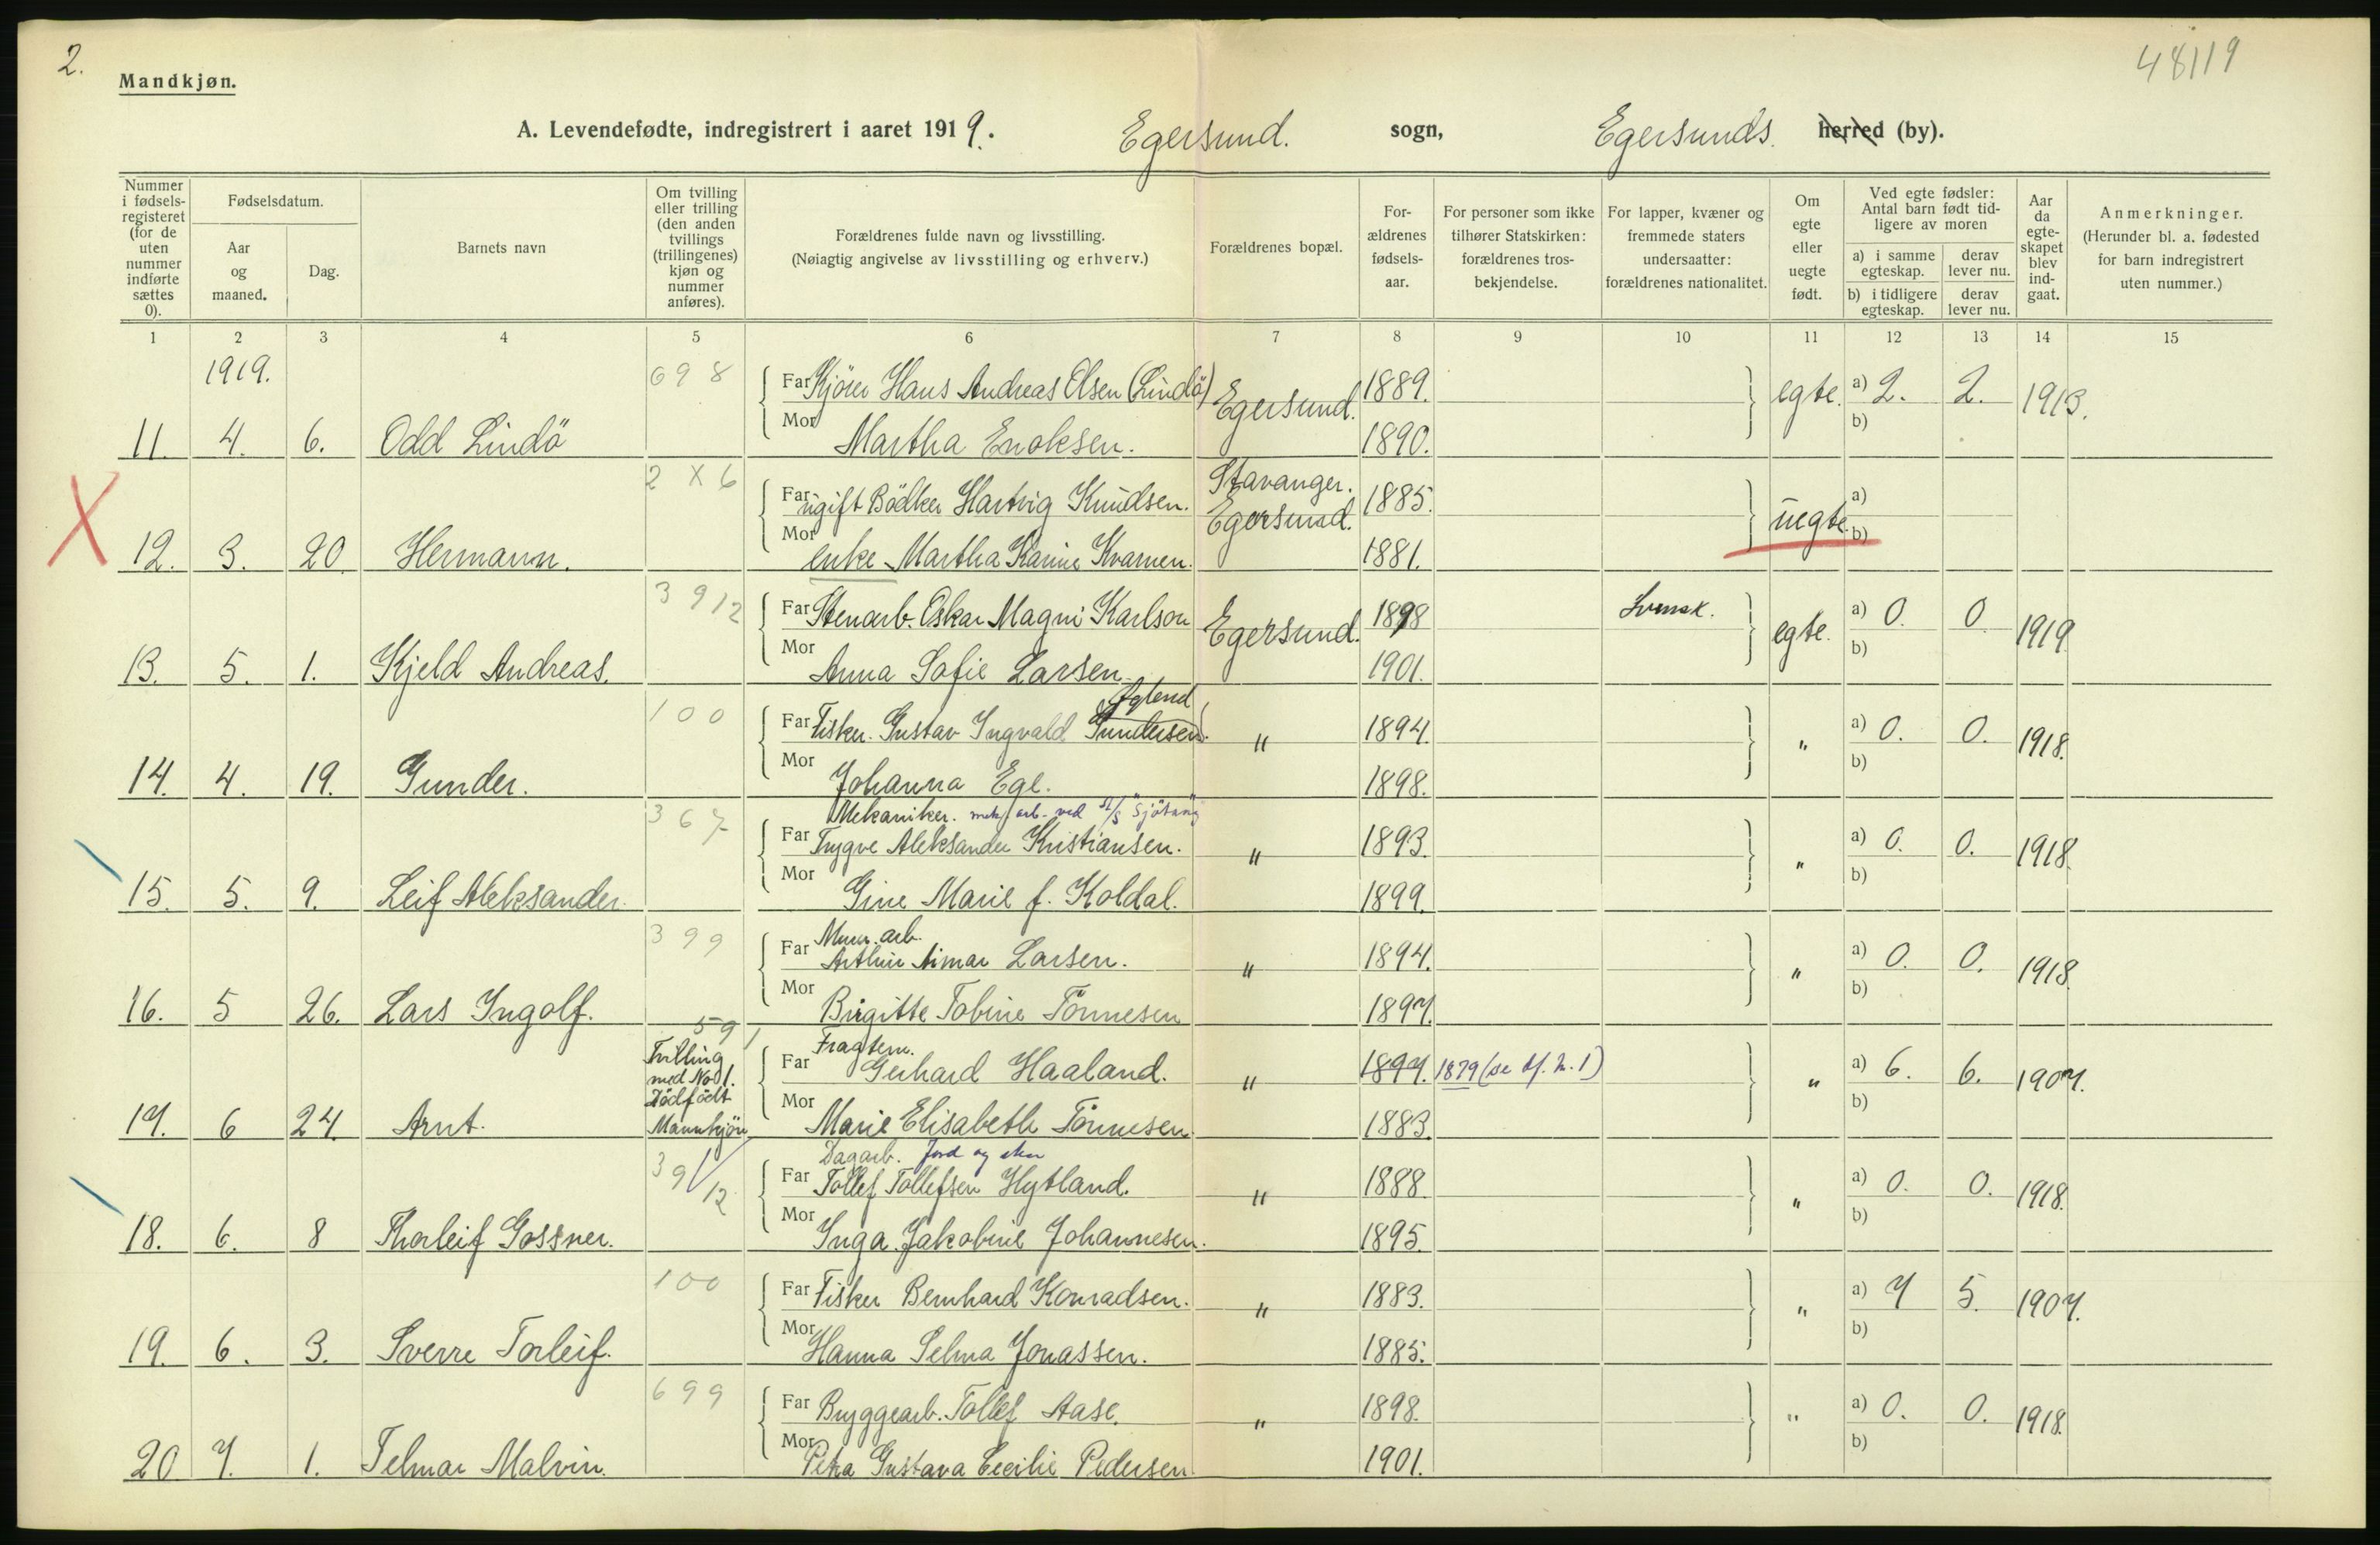 2.
48119
Mandkjøn.
A. Levendefødte, indregistrert i aaret 1919. Egersund. sogn, Egersunds. herred (by).
Nummer i fødselsregisteret (for de uten nummer indførte sættes 0).
Fødselsdatum.
Aar og maaned.
Dag.
Barnets navn
Om tvilling eller trilling (den anden tvillings (trillingenes) kjøn og nummer anføres).
Forældrenes fulde navn og livsstilling.
(Nøiagtig angivelse av livsstilling og erhverv.)
Forældrenes bopæl.
Forældrenes fødselsaar.
For personer som ikke tilhører Statskirken: forældrenes trosbekjendelse.
For lapper, kvæner og fremmede staters undersaatter: forældrenes nationalitet.
Om egte eller uegte født.
Ved egte fødsler: Antal barn født tidligere av moren
a) i samme egteskap.
derav lever nu.
b) i tidligere egteskap.
derav lever nu.
Aar da egteskapet blev indgaat.
Anmerkninger.
(Herunder bl. a. fødested for barn indregistrert uten nummer.)
1 2 3 4 5 6 7 8 9 10 11 12 13 14 15
1919.
698
Far Kjörer Hans Andreas Olsen (Lindö) Egersund. 1889. egte. a) 2. 2. 1913.
11. 4. 6. Odd Lindö Mor Martha Enoksen. 1890. b)
2 X 6 Stavanger.
Far ugift Bödker Hartvig Knudsen. Egersund. 1885. uegte a)
X 12. 3. 20. Hermann. Mor enke Martha Karine Kvamen. 1881. b)
3912
Far Stenarb. Oskar Magni Karlson Egersund. 1898 Svensk. egte. a) 0. 0. 1919.
13. 5. 1. Kjeld Andreas. Mor Anna Sofie Larsen. 1901. b)
100
Far Fisker. Gustav Ingvald Gundersen. " 1894. " a) 0. 0. 1918.
14. 4. 19. Gunder. Mor Johanna Ege. 1898. b)
367 Mekaniker. mek. arb. ved
Far Trygve Aleksander Kristiansen. " 1893. " a) 0. 0. 1918.
15. 5. 9. Leif Aleksander. Mor Gine Marie f. Koldal. 1899. b)
399 Murer. arb.
Far Arthur Aimar Larsen. " 1894. " a) 0. 0. 1918.
16. 5 26. Lars Ingolf. Mor Birgitte Tobine Tönnesen 1897. b)
591
Tvilling med No 1. Dödfödt Mannkjön
Fragtem.
Far Gerhard Haaland. " 1897. 1879 (se df. n. 1) " a) 6. 6. 1907.
17. 6 24. Arnt. Mor Marie Elisabeth Tönnesen. 1883. b)
391/12 Dagarb. Jord og
Far Tollef Tollefsen Hytland. " 1888. " a) 0. 0. 1918.
18. 6. 8 Thorleif Gossner. Mor Inga Jakobine Johannesen. 1895. b)
100
Far Fisker Bernhard Konradsen. " 1883. " a) 7 5. 1907.
19. 6. 3. Sverre Torleif. Mor Hanna Selma Jonassen. 1885. b)
699
Far Bryggearb. Tollef Aase. " 1898. " a) 0. 0. 1918.
20 7. 1. Telmar Malvin. Mor Petra Gustava Cecilie Pedersen. 1901. b)